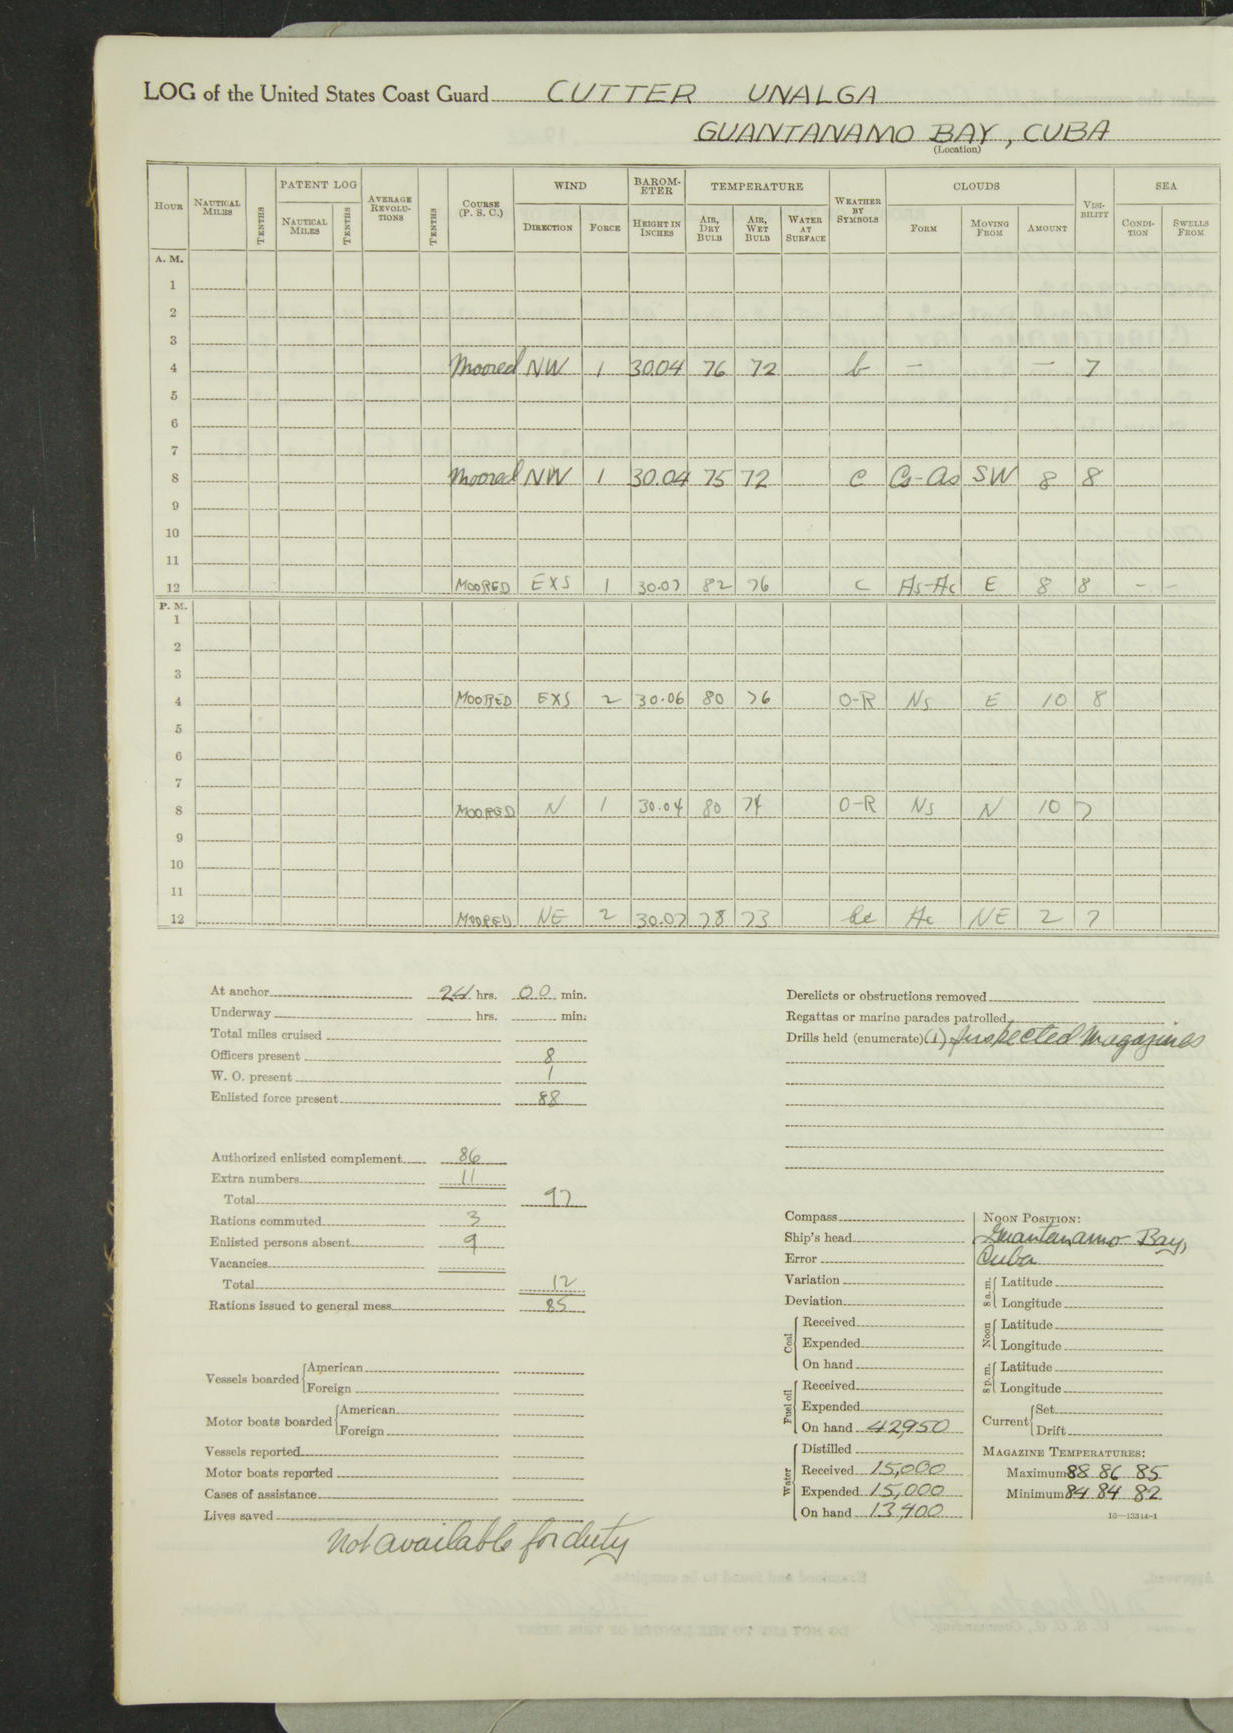 LOG of the United States Coast Guard CUTTER UNALGA
GUANTANAMO BAY, CUBA
(Location)
HOUR NAUTICAL MILES TENTHS PATENT LOG NAUTICAL MILES TENTHS AVERAGE REVOLU-TIONS TENTHS COURSE (P. S. C.) WIND DIRECTION FORCE BAROM-ETER HEIGHT IN INCHES TEMPERATURE AIR, DRY BULB AIR, WET BULB WATER AT SURFACE WEATHER BY SYMBOLS CLOUDS FORM MOVING FROM AMOUNT VISI-BILITY SEA CONDI-TION SWELLS FROM
A. M.
1
2
3
4 Moored NW 1 30.04 76 72 b — — 7
5
6
7
8 Moored NW 1 30.04 75 72 c Cs-As SW 8 8
9
10
11
12 MOORED EXS 1 30.07 82 76 C As-Ac E 8 8 - -
P. M.
1
2
3
4 MOORED EXS 2 30.06 80 76 O-R Ns E 10 8
5
6
7
8 MOORED N 1 30.04 80 74 O-R Ns N 10 7
9
10
11
12 MOORED NE 2 30.07 78 73 bc Ac NE 2 7
At anchor 24 hrs. 00 min.
Underway hrs. min.
Total miles cruised
Officers present 8
W. O. present 1
Enlisted force present 88
Authorized enlisted complement 86
Extra numbers 11
Total 97
Rations commuted 3
Enlisted persons absent 9
Vacancies
Total 12
Rations issued to general mess 85
Vessels boarded American
Foreign
Motor boats boarded American
Foreign
Vessels reported
Motor boats reported
Cases of assistance
Lives saved
Not available for duty
Derelicts or obstructions removed
Regattas or marine parades patrolled
Drills held (enumerate) (1) Inspected Magazines
Compass
Ship's head
Error
Variation
Deviation
Coal Received
Expended
On hand
Fuel oil Received
Expended
On hand 42,950
Water Distilled
Received 15,000
Expended 15,000
On hand 13,400
NOON POSITION:
Guantanamo Bay,
Cuba
8 a. m. Latitude
Longitude
Noon Latitude
Longitude
8 p. m. Latitude
Longitude
Current Set
Drift
MAGAZINE TEMPERATURES:
Maximum 88 86 85
Minimum 84 84 82
16—13314-1